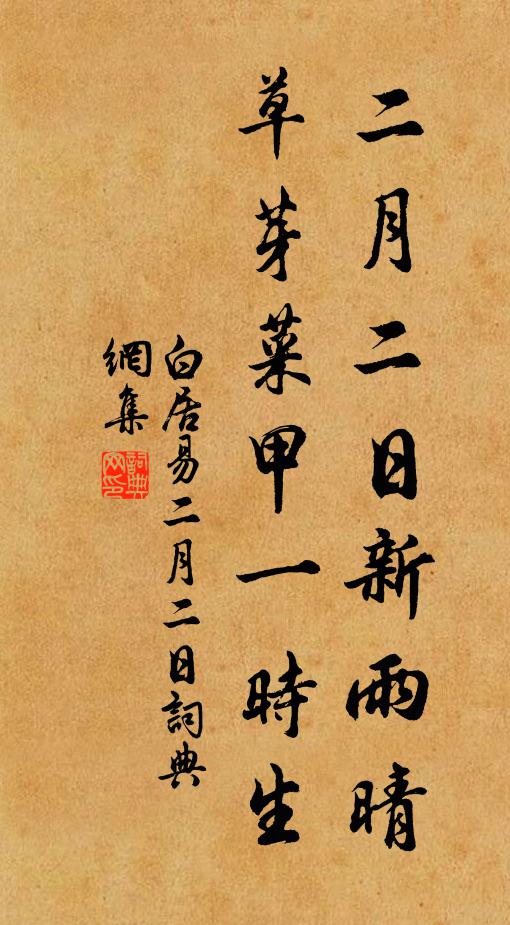 二月二日新雨晴
草芽菜甲一時生
白居易二月二日詞典
網集
詞典
网印